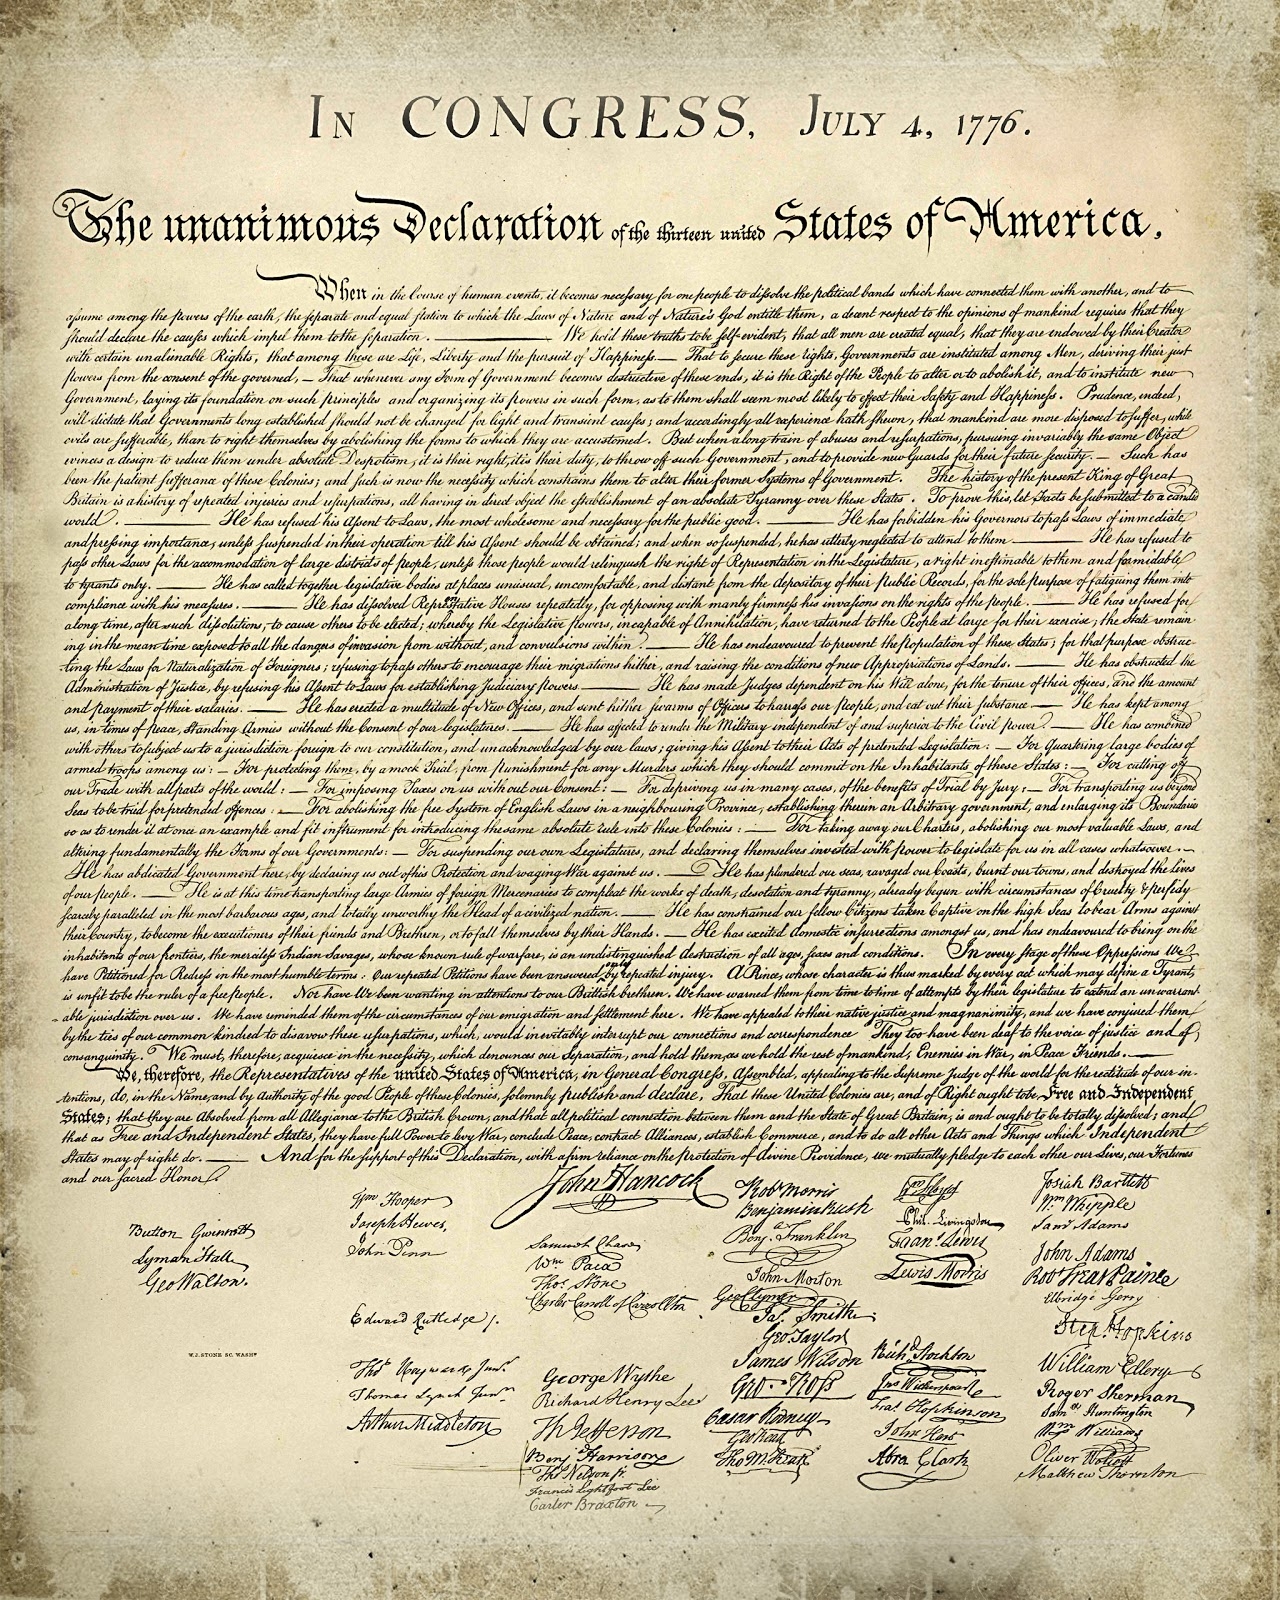 In CONGRESS, July 4, 1776.
The unanimous Declaration of the thirteen united States of America,
When in the Course of human events, it becomes necessary for one people to dissolve the political bands which have connected them with another, and to
assume among the powers of the earth, the separate and equal station to which the Laws of Nature and of Nature's God entitle them, a decent respect to the opinions of mankind requires that they
should declare the causes which impel them to the separation. ——— We hold these truths to be self-evident, that all men are created equal, that they are endowed by their Creator
with certain unalienable Rights, that among these are Life, Liberty and the pursuit of Happiness.— That to secure these rights, Governments are instituted among Men, deriving their just
powers from the consent of the governed, — That whenever any Form of Government becomes destructive of these ends, it is the Right of the People to alter or to abolish it, and to institute new
Government, laying its foundation on such principles and organizing its powers in such form, as to them shall seem most likely to effect their Safety and Happiness. Prudence, indeed,
will dictate that Governments long established should not be changed for light and transient causes; and accordingly all experience hath shewn, that mankind are more disposed to suffer, while
evils are sufferable, than to right themselves by abolishing the forms to which they are accustomed. But when a long train of abuses and usurpations, pursuing invariably the same Object
evinces a design to reduce them under absolute Despotism, it is their right, it is their duty, to throw off such Government, and to provide new Guards for their future security. — Such has
been the patient sufferance of these Colonies; and such is now the necessity which constrains them to alter their former Systems of Government. The history of the present King of Great
Britain is a history of repeated injuries and usurpations, all having in direct object the establishment of an absolute Tyranny over these States. To prove this, let Facts be submitted to a candid
world. ——— He has refused his Assent to Laws, the most wholesome and necessary for the public good. ——— He has forbidden his Governors to pass Laws of immediate
and pressing importance, unless suspended in their operation till his Assent should be obtained; and when so suspended, he has utterly neglected to attend to them ——— He has refused to
pass other Laws for the accommodation of large districts of people, unless those people would relinquish the right of Representation in the Legislature, a right inestimable to them and formidable
to tyrants only. ——— He has called together legislative bodies at places unusual, uncomfortable, and distant from the depository of their public Records, for the sole purpose of fatiguing them into
compliance with his measures. ——— He has dissolved Representative Houses repeatedly, for opposing with manly firmness his invasions on the rights of the people. ——— He has refused for
a long time, after such dissolutions, to cause others to be elected; whereby the Legislative powers, incapable of Annihilation, have returned to the People at large for their exercise; the State remain
ing in the mean time exposed to all the dangers of invasion from without, and convulsions within. ——— He has endeavoured to prevent the population of these States; for that purpose obstruc
ting the Laws for Naturalization of Foreigners; refusing to pass others to encourage their migrations hither, and raising the conditions of new Appropriations of Lands. ——— He has obstructed the
Administration of Justice, by refusing his Assent to Laws for establishing Judiciary powers ——— He has made Judges dependent on his Will alone, for the tenure of their offices, and the amount
and payment of their salaries. ——— He has erected a multitude of New Offices, and sent hither swarms of Officers to harrass our people, and eat out their substance — He has kept among
us, in times of peace, Standing Armies without the Consent of our legislatures. ——— He has affected to render the Military independent of and superior to the Civil power. ——— He has combined
with others to subject us to a jurisdiction foreign to our constitution, and unacknowledged by our laws; giving his Assent to their Acts of pretended Legislation: — For Quartering large bodies of
armed troops among us: — For protecting them, by a mock Trial, from punishment for any Murders which they should commit on the Inhabitants of these States: — For cutting off
our Trade with all parts of the world: — For imposing Taxes on us without our Consent: — For depriving us in many cases, of the benefits of Trial by Jury: — For transporting us beyond
Seas to be tried for pretended offences: — For abolishing the free System of English Laws in a neighbouring Province, establishing therein an Arbitrary government, and enlarging its Boundaries
so as to render it at once an example and fit instrument for introducing the same absolute rule into these Colonies: — For taking away our Charters, abolishing our most valuable Laws, and
altering fundamentally the Forms of our Governments: — For suspending our own Legislatures, and declaring themselves invested with power to legislate for us in all cases whatsoever. —
He has abdicated Government here, by declaring us out of his Protection and waging War against us. —— He has plundered our seas, ravaged our Coasts, burnt our towns, and destroyed the lives
of our people. —— He is at this time transporting large Armies of foreign Mercenaries to compleat the works of death, desolation and tyranny, already begun with circumstances of Cruelty & perfidy
scarcely paralleled in the most barbarous ages, and totally unworthy the Head of a civilized nation. —— He has constrained our fellow Citizens taken Captive on the high Seas to bear Arms against
their Country, to become the executioners of their friends and Brethren, or to fall themselves by their Hands. — He has excited domestic insurrections amongst us, and has endeavoured to bring on the
inhabitants of our frontiers, the merciless Indian Savages, whose known rule of warfare, is an undistinguished destruction of all ages, sexes and conditions. In every stage of these Oppressions We
have Petitioned for Redress in the most humble terms: Our repeated Petitions have been answered only by repeated injury. A Prince, whose character is thus marked by every act which may define a Tyrant,
is unfit to be the ruler of a free people. Nor have We been wanting in attentions to our Brittish brethren. We have warned them from time to time of attempts by their legislature to extend an unwarrant
able jurisdiction over us. We have reminded them of the circumstances of our emigration and settlement here. We have appealed to their native justice and magnanimity, and we have conjured them
by the ties of our common kindred to disavow these usurpations, which, would inevitably interrupt our connections and correspondence They too have been deaf to the voice of justice and of
consanguinity. We must, therefore, acquiesce in the necessity, which denounces our Separation, and hold them, as we hold the rest of mankind, Enemies in War, in Peace Friends. —
We, therefore, the Representatives of the united States of America, in General Congress, Assembled, appealing to the Supreme Judge of the world for the rectitude of our in-
tentions, do, in the Name, and by Authority of the good People of these Colonies, solemnly publish and declare, That these United Colonies are, and of Right ought to be Free and Independent
States; that they are Absolved from all Allegiance to the British Crown, and that all political connection between them and the State of Great Britain, is and ought to be totally dissolved; and
that as Free and Independent States, they have full Power to levy War, conclude Peace, contract Alliances, establish Commerce, and to do all other Acts and Things which Independent
States may of right do. —— And for the support of this Declaration, with a firm reliance on the protection of divine Providence, we mutually pledge to each other our Lives, our Fortunes
and our sacred Honor.
Button Gwinnett
Lyman Hall
Geo Walton.
W.J. STONE SC. WASHn
Wm Hooper
Joseph Hewes,
John Penn
Edward Rutledge /.
Thos Heyward Junr.
Thomas Lynch Junr.
Arthur Middleton
John Hancock
Samuel Chase
Wm Paca
Thos Stone
Charles Carroll of Carrollton
George Wythe
Richard Henry Lee
Th Jefferson
Benj Harrison
Thos Nelson jr.
Francis Lightfoot Lee
Carter Braxton
Robt Morris
Benjamin Rush
Benj. Franklin
John Morton
Geo Clymer
Jas. Smith
Geo. Taylor
James Wilson
Geo. Ross
Caesar Rodney
Geo Read
Tho M:Kean
Wm Floyd
Phil. Livingston
Frans. Lewis
Lewis Morris
Richd. Stockton
Jno Witherspoon
Fras. Hopkinson
John Hart
Abra Clark
Josiah Bartlett
Wm. Whipple
Saml Adams
John Adams
Robt Treat Paine
Elbridge Gerry
Step. Hopkins
William Ellery
Roger Sherman
Saml Huntington
Wm Williams
Oliver Wolcott
Matthew Thornton